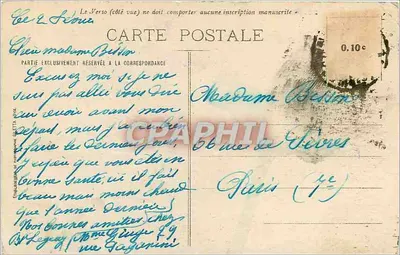 Le Verso (côté vue) ne doit comporter aucune inscription manuscrite
CARTE POSTALE
PARTIE EXCLUSIVEMENT RÉSERVÉE A LA CORRESPONDANCE
Ce 2
Chère madame Besson
Excusez moi si je ne
suis pas allée vous dire
au revoir avant mon
départ, mais j'ai
à faire les derniers jours
J'espère que vous êtes en
bonne santé, ici il fait
beau mais moins chaud
que l'année dernière
Nos bonnes amitiés, chez
Mme 29
rue Paganini
0.10 c
Madame Besson
66 rue de Sèvres
Paris
CPAPHIL